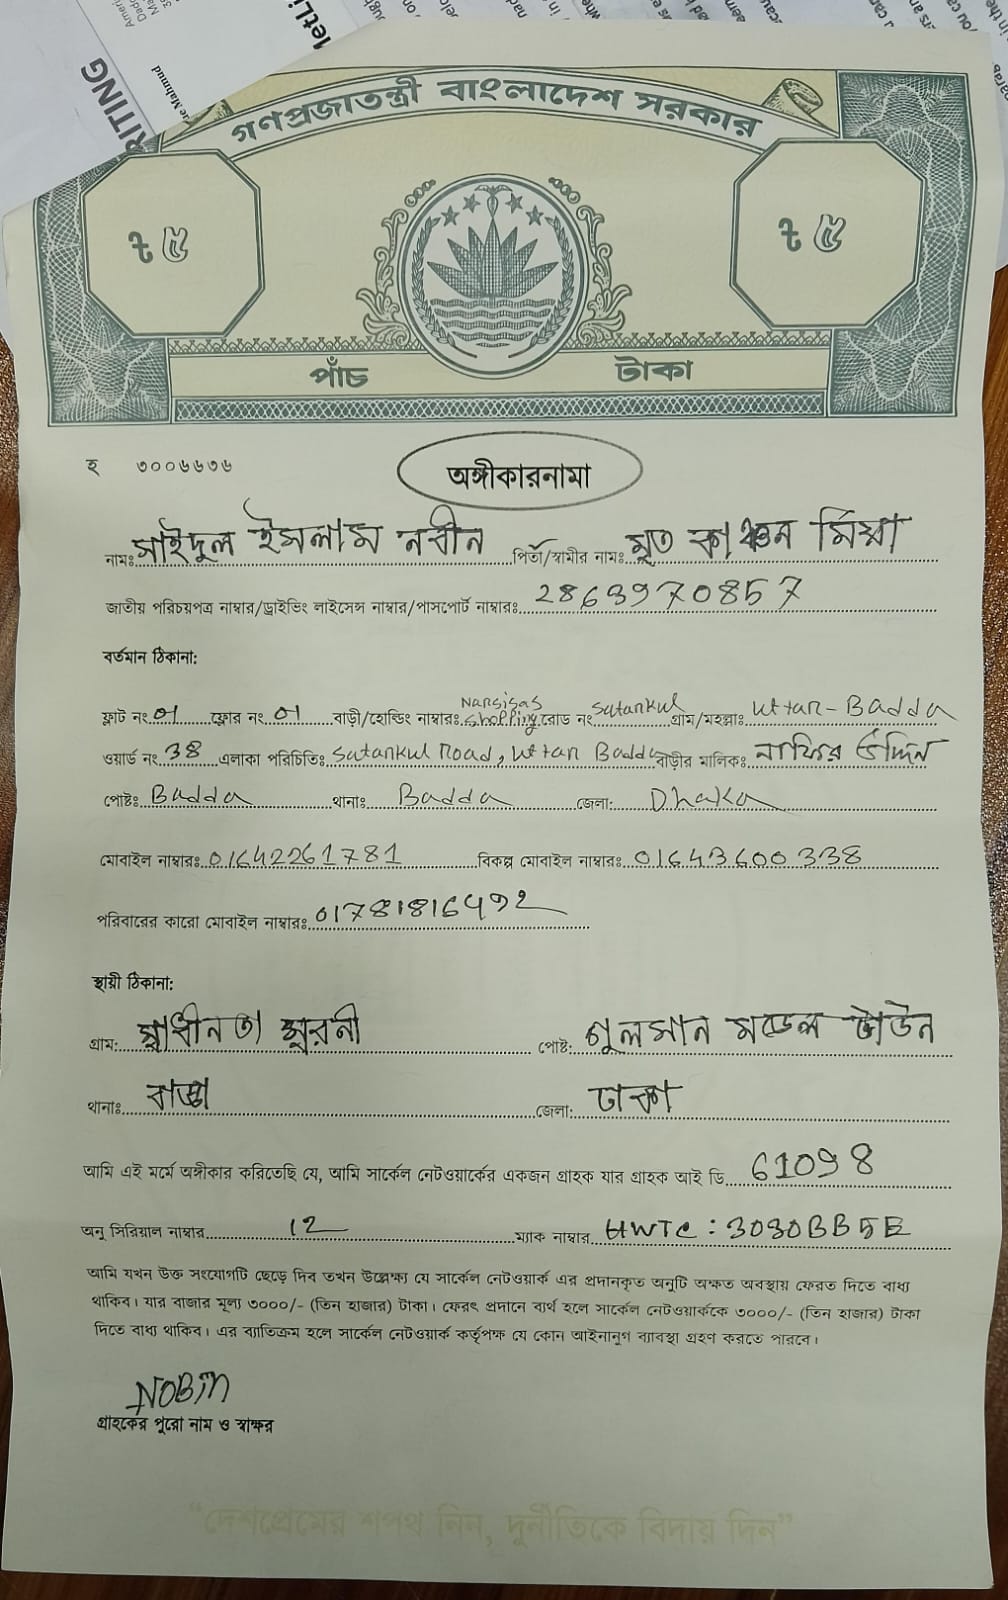 RITING
Mahmud
MetLi
গণপ্রজাতন্ত্রী বাংলাদেশ সরকার
৳ ৫ ৳ ৫
পাঁচ টাকা
হ ৩০০৬৬৩৬
অঙ্গীকারনামা
নামঃ সাইদুল ইসলাম নবীন পিতা/স্বামীর নামঃ মৃত কাঞ্চন মিয়া
জাতীয় পরিচয়পত্র নাম্বার/ড্রাইভিং লাইসেন্স নাম্বার/পাসপোর্ট নাম্বারঃ 2863970857
বর্তমান ঠিকানা:
ফ্লাট নং 01 ফ্লোর নং 01 বাড়ী/হোল্ডিং নাম্বারঃ Nargisas Shopping রোড নং Satarkul গ্রাম/মহল্লাঃ Uttar-Badda
ওয়ার্ড নং 38 এলাকা পরিচিতিঃ Satarkul Road, Uttar Badda বাড়ীর মালিকঃ নাফির উদ্দিন
পোষ্টঃ Badda থানাঃ Badda জেলা: Dhaka
মোবাইল নাম্বারঃ 01642261781 বিকল্প মোবাইল নাম্বারঃ 01643600338
পরিবারের কারো মোবাইল নাম্বারঃ 01781816492
স্থায়ী ঠিকানা:
গ্রাম: স্বাধীনতা স্মরনী পোষ্ট: গুলসান মডেল টাউন
থানাঃ বাড্ডা জেলা: ঢাকা
আমি এই মর্মে অঙ্গীকার করিতেছি যে, আমি সার্কেল নেটওয়ার্কের একজন গ্রাহক যার গ্রাহক আই ডি 61098
অনু সিরিয়াল নাম্বার 12 ম্যাক নাম্বার HWTC : 3030BB5E
আমি যখন উক্ত সংযোগটি ছেড়ে দিব তখন উল্লেক্ষ্য যে সার্কেল নেটওয়ার্ক এর প্রদানকৃত অনুটি অক্ষত অবস্থায় ফেরত দিতে বাধ্য
থাকিব। যার বাজার মূল্য ৩০০০/- (তিন হাজার) টাকা। ফেরৎ প্রদানে ব্যর্থ হলে সার্কেল নেটওয়ার্ককে ৩০০০/- (তিন হাজার) টাকা
দিতে বাধ্য থাকিব। এর ব্যাতিক্রম হলে সার্কেল নেটওয়ার্ক কর্তৃপক্ষ যে কোন আইনানুগ ব্যাবস্থা গ্রহণ করতে পারবে।
NOBIN
গ্রাহকের পুরো নাম ও স্বাক্ষর
"দেশপ্রেমের শপথ নিন, দুর্নীতিকে বিদায় দিন"